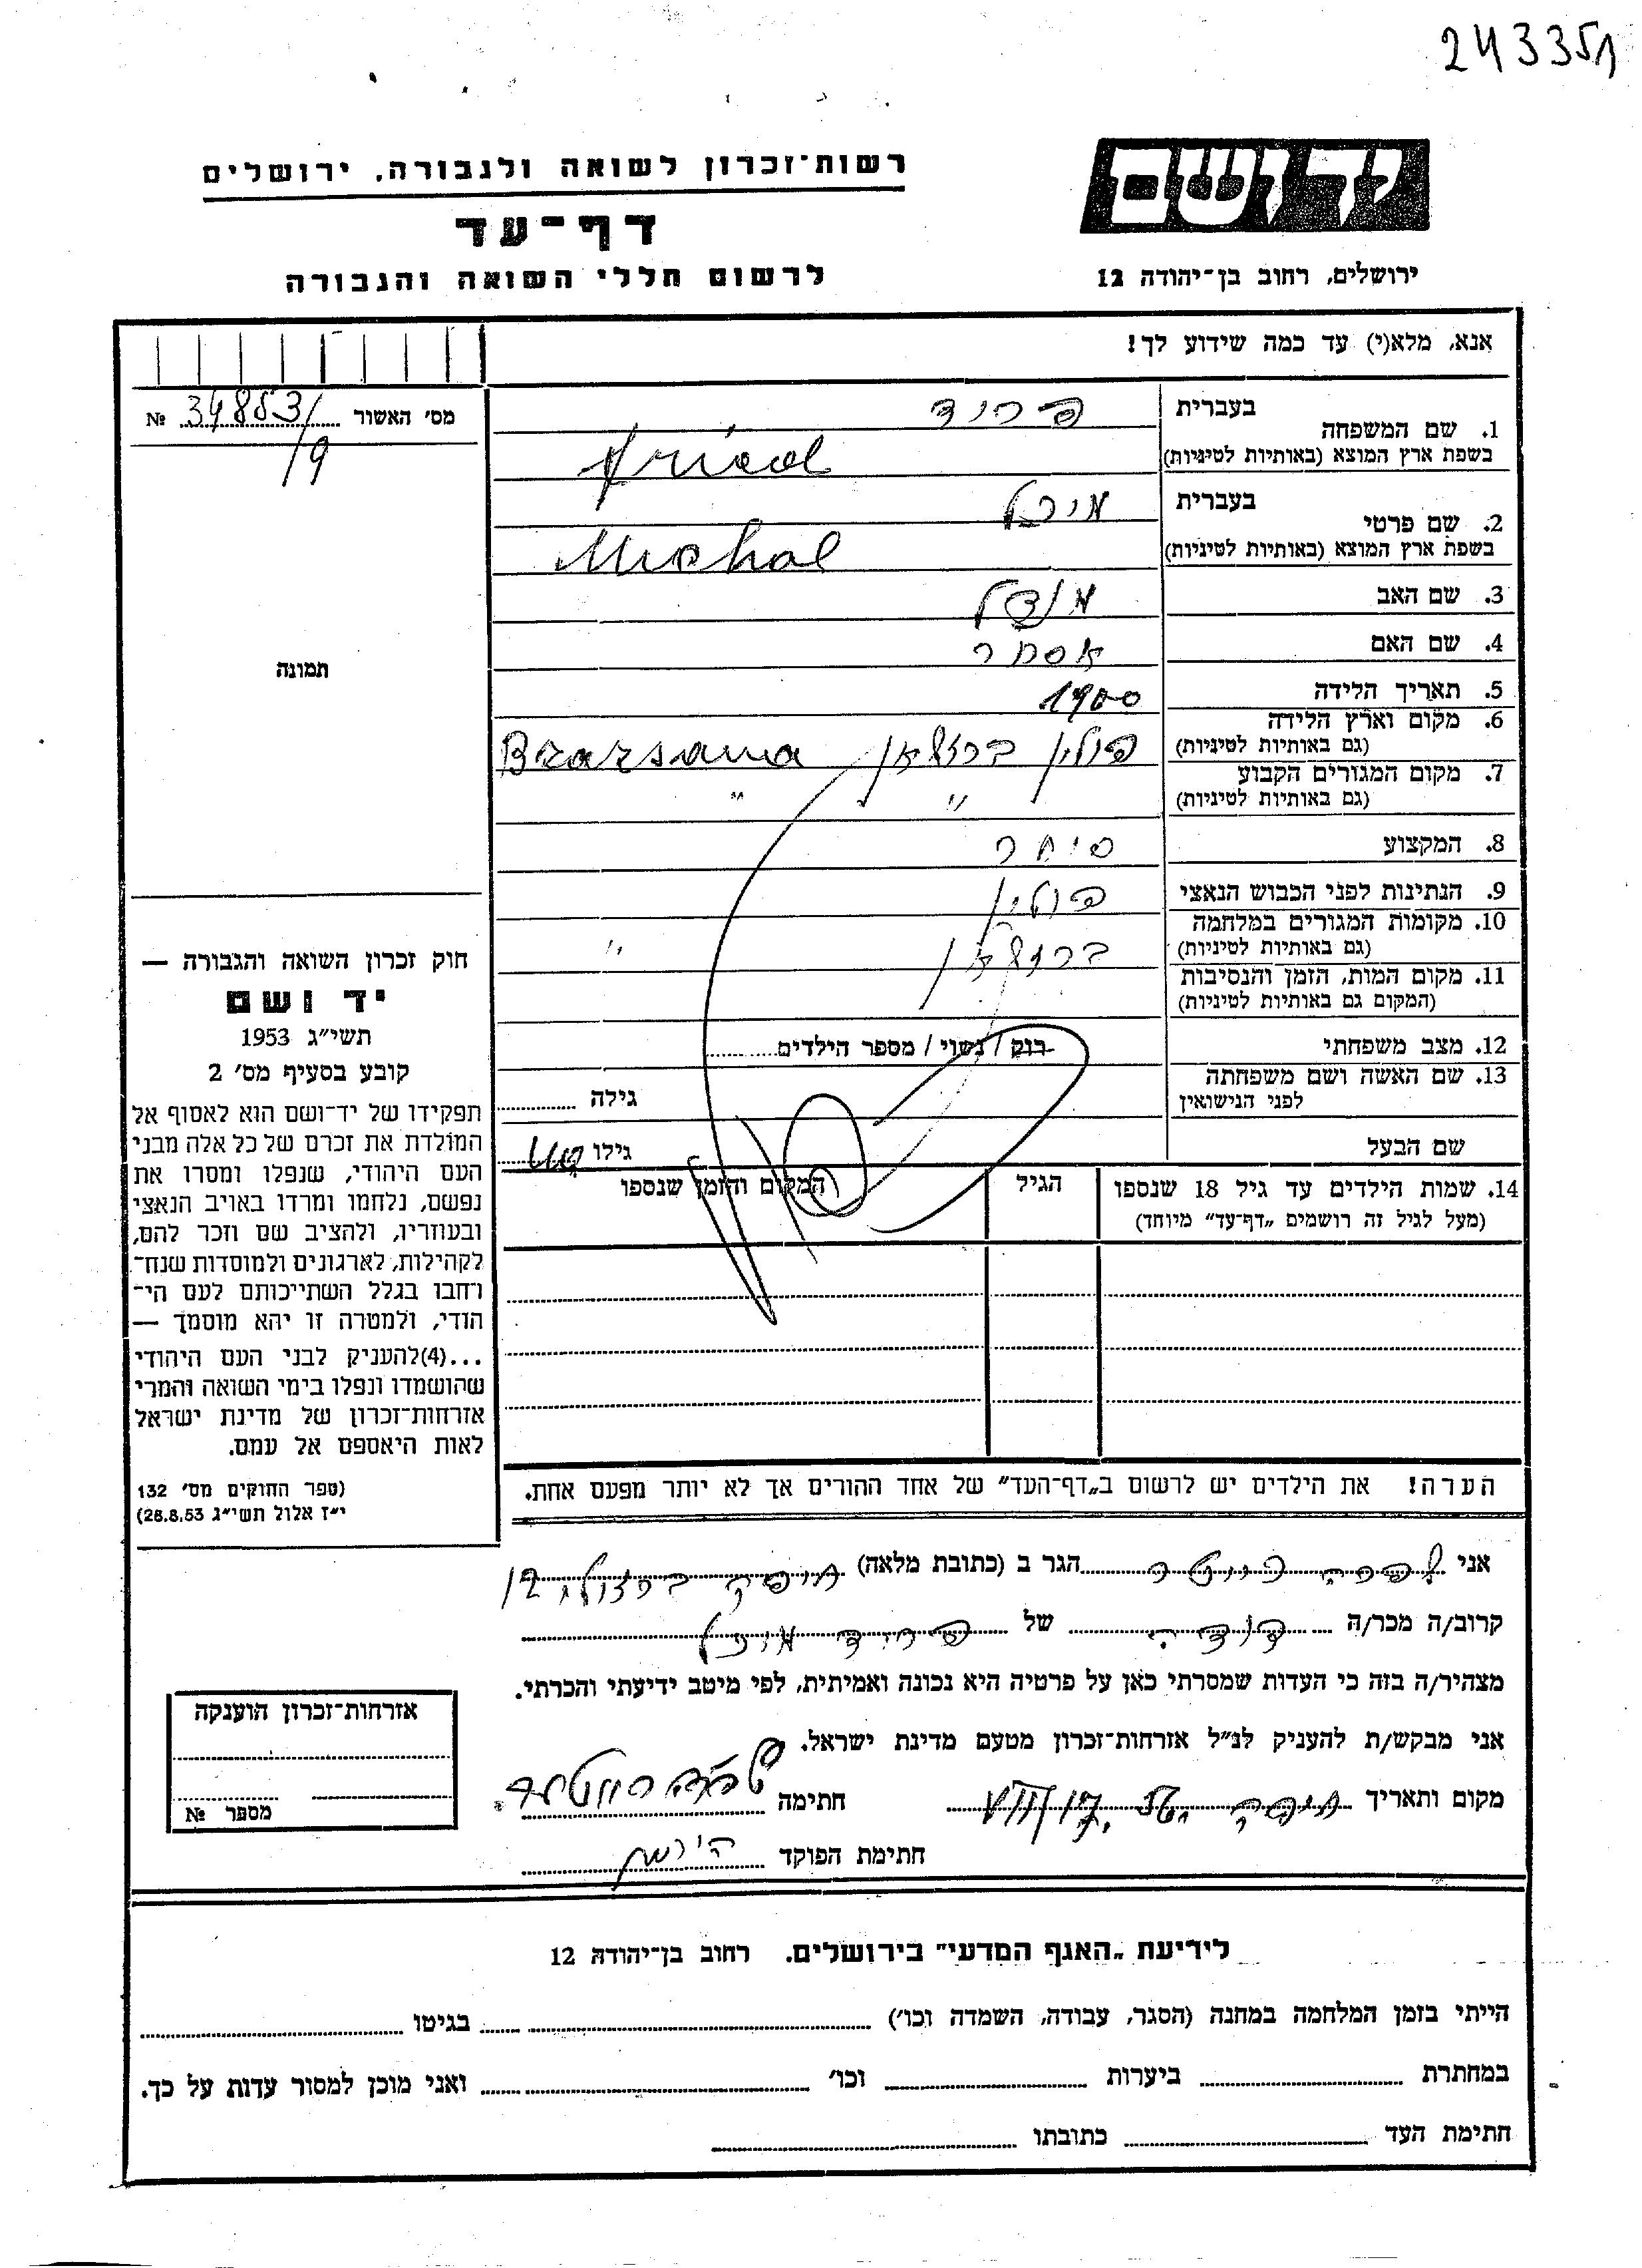 243351
יד ושם
רשות־זכרון לשואה ולגבורה, ירושלים
דף־עד
ירושלים, רחוב בן־יהודה 12
לרשום חללי השואה והגבורה
אנא, מלא(י) עד כמה שידוע לך!
מס׳ האשור 34853/ №
/9
1. שם המשפחה בעברית פריד
בשפת ארץ המוצא (באותיות לטיניות) Fried
2. שם פרטי בעברית מיכל
בשפת ארץ המוצא (באותיות לטיניות) Michal
3. שם האב מנדל
4. שם האם אסתר
5. תאריך הלידה 1900
6. מקום וארץ הלידה (גם באותיות לטיניות) פולין
7. מקום המגורים הקבוע (גם באותיות לטיניות) " "
8. המקצוע סוחר
9. הנתינות לפני הכבוש הנאצי פולין
10. מקומות המגורים במלחמה (גם באותיות לטיניות) "
11. מקום המות, הזמן והנסיבות (המקום גם באותיות לטיניות)
12. מצב משפחתי רוק / נשוי / מספר הילדים
13. שם האשה ושם משפחתה לפני הנישואין גילה
שם הבעל גילו
14. שמות הילדים עד גיל 18 שנספו הגיל המקום והזמן שנספו
(מעל לגיל זה רושמים „דף־עד״ מיוחד)
תמונה
חוק זכרון השואה והגבורה —
יד ושם
תשי״ג 1953
קובע בסעיף מס׳ 2
תפקידו של יד־ושם הוא לאסוף אל
המולדת את זכרם של כל אלה מבני
העם היהודי, שנפלו ומסרו את
נפשם, נלחמו ומרדו באויב הנאצי
ובעוזריו, ולהציב שם וזכר להם,
לקהילות, לארגונים ולמוסדות שנח־
רחבו בגלל השתייכותם לעם הי־
הודי, ולמטרה זו יהא מוסמך —
...(4)להעניק לבני העם היהודי
שהושמדו ונפלו בימי השואה והמרי
אזרחות־זכרון של מדינת ישראל
לאות היאספם אל עמם.
(ספר החוקים מס׳ 132
י״ז אלול תשי״ג 28.8.53)
הערה! את הילדים יש לרשום ב„דף־העד״ של אחד ההורים אך לא יותר מפעם אחת.
אני הגר ב (כתובת מלאה) חיפה
קרוב/ה מכר/ה דודה של פריד מיכל
מצהיר/ה בזה כי העדות שמסרתי כאן על פרטיה היא נכונה ואמיתית, לפי מיטב ידיעתי והכרתי.
אני מבקש/ת להעניק לנ״ל אזרחות־זכרון מטעם מדינת ישראל.
מקום ותאריך חיפה חתימה
חתימת הפוקד
אזרחות־זכרון הוענקה
מספר №
לידיעת „האגף המדעי״ בירושלים. רחוב בן־יהודה 12
הייתי בזמן המלחמה במחנה (הסגר, עבודה, השמדה וכו׳) בגיטו
במחתרת ביערות וכו׳ ואני מוכן למסור עדות על כך.
חתימת העד כתובתו